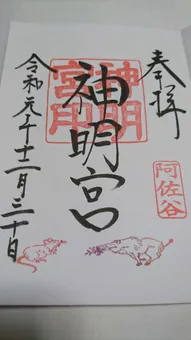 奉拝
神明宮
神明宮印
阿佐谷
令和元年十二月三十日